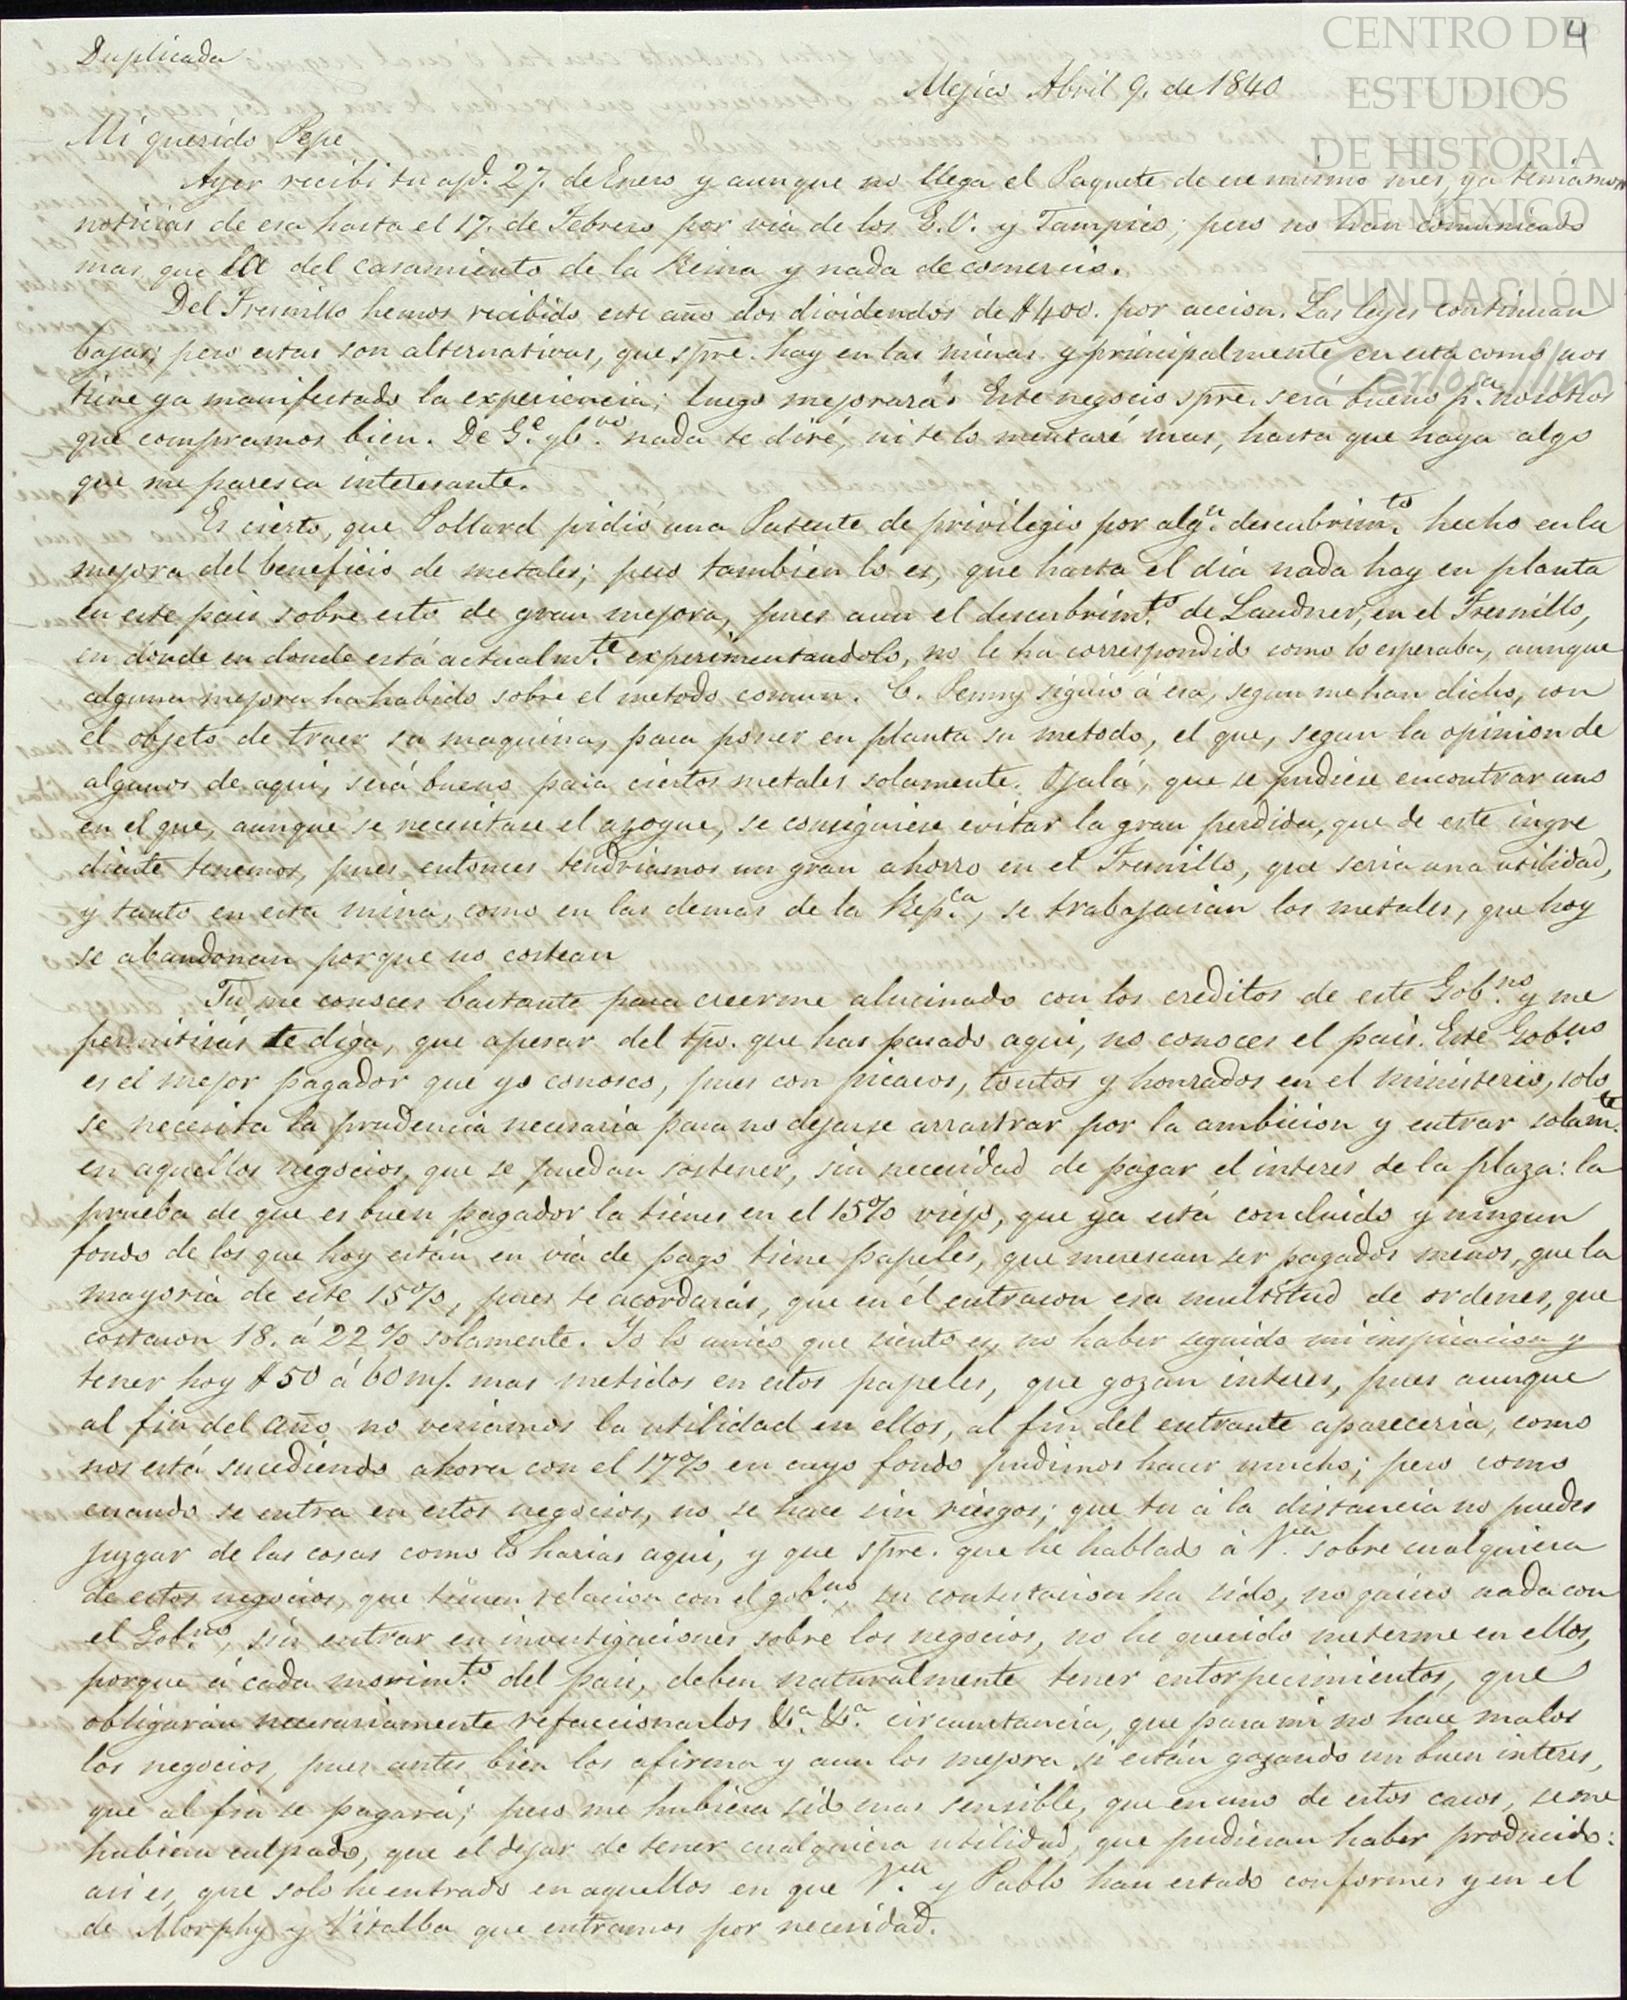 4
CENTRO DE
ESTUDIOS
DE HISTORIA
DE MÉXICO
FUNDACIÓN
Carlos Slim
Duplicada
Mejico Abril 9. de 1840
Mi querido Pepe
Ayer recibi tu apd. 27. de Enero y aunque no llega el Paquete de ese mismo mes, ya teniamos
noticias de esa hasta el 17. de Febrero por via de los E.U. y Tampico; pero no han comunicado
mas que la del casamiento de la Reina y nada de comercio.
Del Fresnillo hemos recibido este año dos dividendos de $400. por accion. Las leyes continuan
bajas; pero estas son alternativas, que spre. hay en las minas y principalmente en esta como nos
tiene ya manifestado la experiencia; luego mejorará. Este negocio spre. será bueno pa. nosotros
que compramos bien. De Ge. y nada te diré, ni te lo mentaré mas, hasta que haya algo
que me paresca interesante.
Es cierto, que Pollard pidió una Patente de privilegio por algn. descubrimto. hecho en la
mejora del beneficio de metales; pero tambien lo es, que hasta el dia nada hay en planta
en este pais sobre esto de gran mejora, pues aun el descubrimto. de Laudner, en el Fresnillo,
en donde en donde está actualmte. experimentandolo, no le ha correspondido como lo esperaba, aunque
alguna mejora ha habido sobre el metodo comun. C. Penny siguio á esa, segun me han dicho, con
el objeto de traer su maquina, para poner en planta su metodo, el que, segun la opinion de
algunos de aqui, será bueno para ciertos metales solamente. Ojalá, que se pudiese encontrar uno
en el que, aunque se necesitase el azogue, se consiguiese evitar la gran perdida, que de este ingre
diente tenemos, pues entonces tendriamos un gran ahorro en el Fresnillo, que seria una utilidad,
y tanto en esta mina, como en las demas de la Repca., se trabajarian los metales, que hoy
se abandonan porque no costean
Tu me conoces bastante para creerme alucinado con los creditos de este Gobno. y me
permitirás te diga, que apesar del tpo. que has pasado aqui, no conoces el pais. Este Gobno.
es el mejor pagador que yo conosco, pues con picaros, tontos y honrados en el ministerio, solo
se necesita la prudencia necesaria para no dejarse arrastrar por la ambicion y entrar solamte.
en aquellos negocios, que se puedan sostener, sin necesidad de pagar el interes de la plaza: la
prueba de que es buen pagador la tienes en el 15% viejo, que ya está concluido y ningun
fondo de los que hoy están en via de pago tiene papeles, que merescan ser pagados menos, que la
mayoria de este 15%, pues te acordarás, que en él entraron esa multitud de ordenes, que
costaron 18. á 22% solamente. Yo lo unico que siento es, no haber seguido mi inspiracion y
tener hoy $50 á 60 m/. mas metidos en estos papeles, que gozan interes, pues aunque
al fin del año no veriamos la utilidad en ellos, al fin del entrante apareceria, como
nos está sucediendo ahora con el 17% en cuyo fondo pudimos hacer mucho; pero como
cuando se entra en estos negocios, no se hace sin riesgos; que tu á la distancia no puedes
juzgar de las cosas como lo harias aqui, y que spre. que he hablado á Vea. sobre cualquiera
de estos negocios, que tienen relacion con el gobno., su contestacion ha sido, no quiero nada con
el Gobno., sin entrar en investigaciones sobre los negocios, no he querido meterme en ellos,
porque á cada movimto. del pais, deben naturalmente tener entorpecimientos, que
obligarán necesariamente refaccionarlos &a. &a. circunstancia, que para mi no hace malos
los negocios, pues antes bien los afirma y aun los mejora si están gozando un buen interes,
que al fin se pagará; pero me hubiera sido mas sensible, que en uno de estos casos, se me
hubiera culpado, que el dejar de tener cualquiera utilidad, que pudieran haber producido:
asi es, que solo he entrado en aquellos en que Vea. y Pablo han estado conformes y en el
de Morphy y Vitalba que entramos por necesidad.